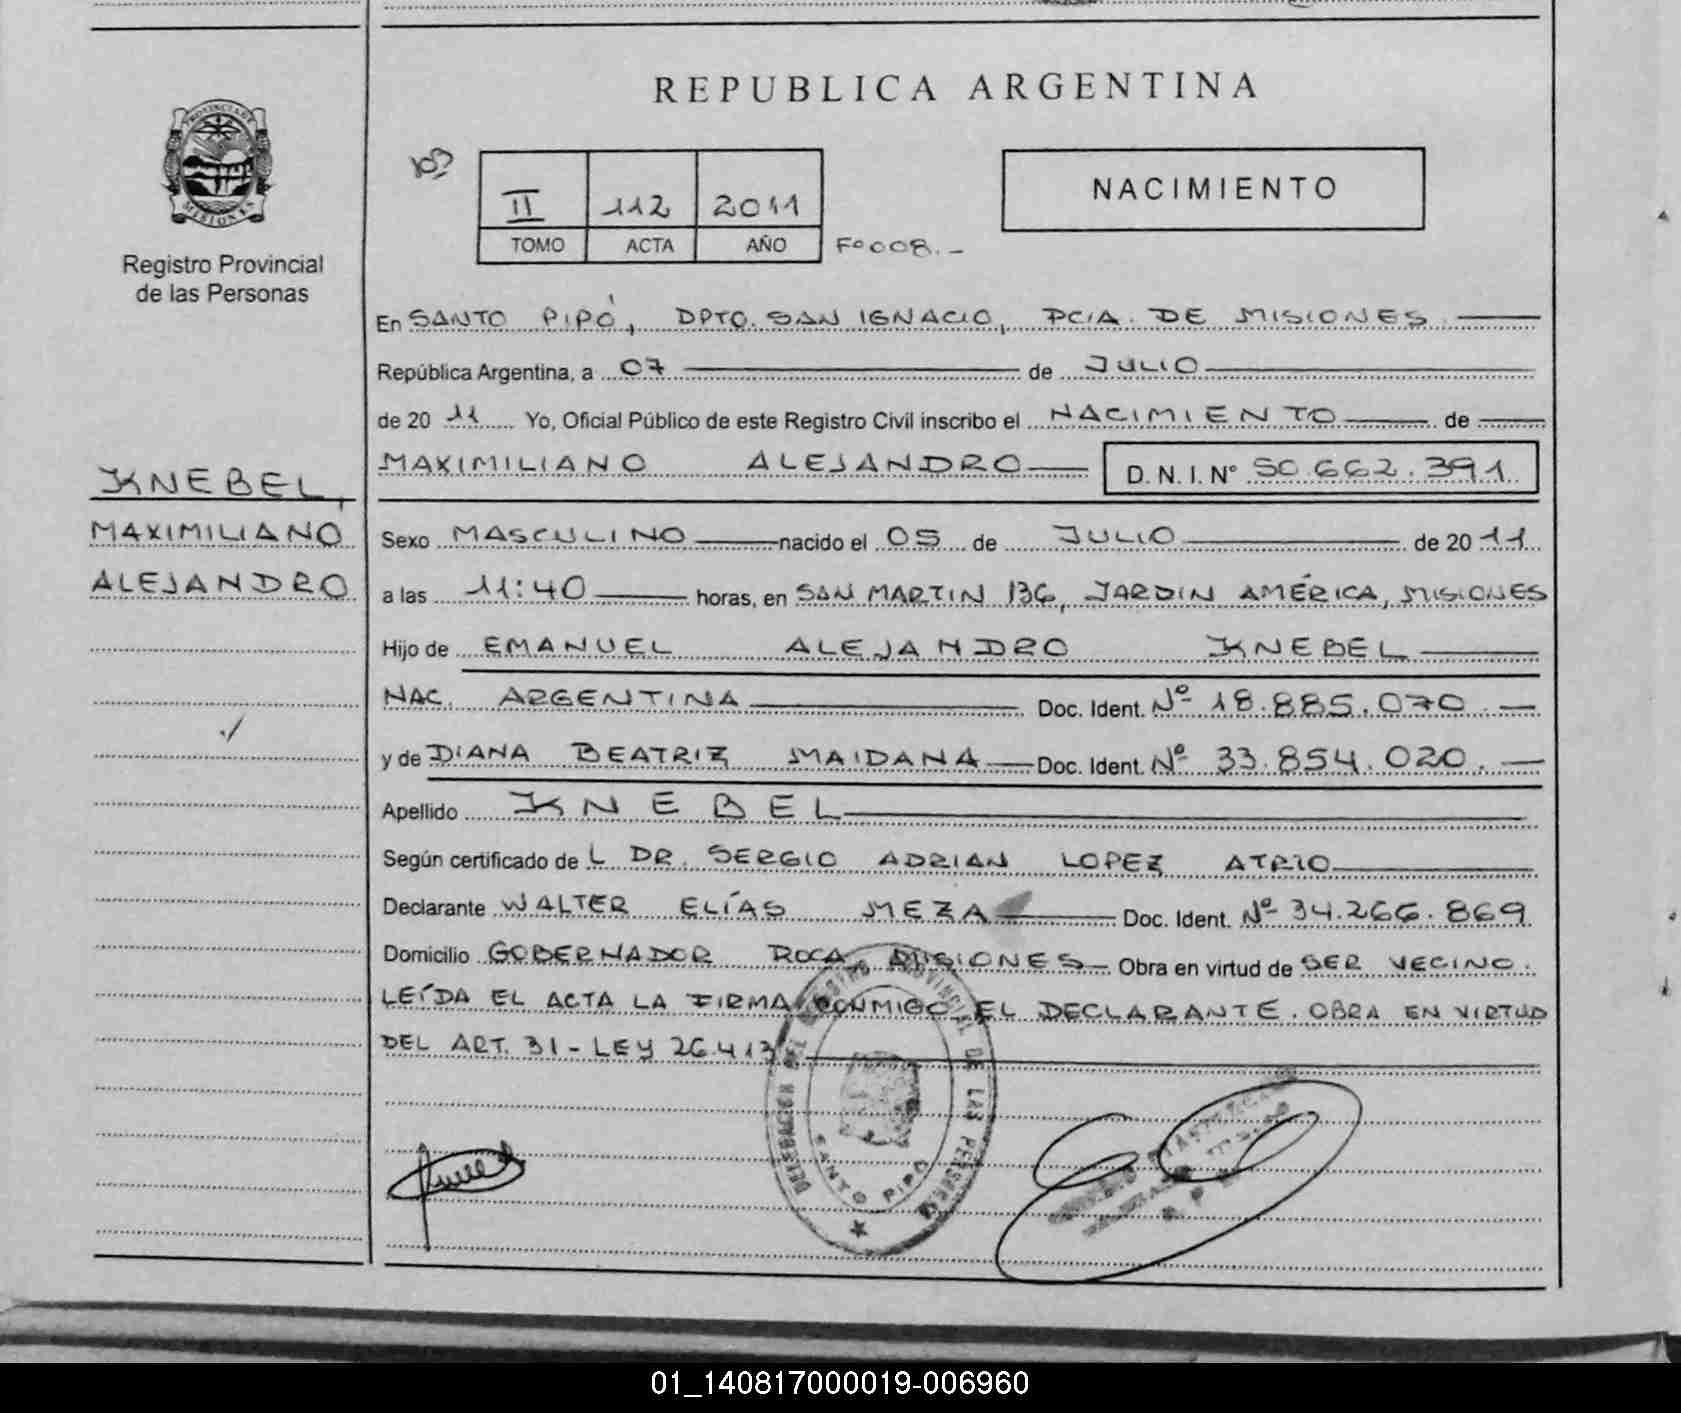 REPUBLICA ARGENTINA
PROVINCIA DE
MISIONES
Registro Provincial
de las Personas
103
II 112 2011
TOMO ACTA AÑO
Fº 008.-
NACIMIENTO
En SANTO PIPÓ, DPTO. SAN IGNACIO, PCIA. DE MISIONES
República Argentina, a 07 de JULIO
de 20 11 Yo, Oficial Público de este Registro Civil inscribo el NACIMIENTO de
MAXIMILIANO ALEJANDRO D. N. I. Nº 50.662.391
KNEBEL,
MAXIMILIANO
ALEJANDRO
Sexo MASCULINO nacido el 05 de JULIO de 20 11
a las 11:40 horas, en SAN MARTIN 136, JARDIN AMÉRICA, MISIONES
Hijo de EMANUEL ALEJANDRO KNEBEL
NAC. ARGENTINA Doc. Ident. Nº 18.885.070.-
y de DIANA BEATRIZ MAIDANA Doc. Ident. Nº 33.854.020.-
Apellido KNEBEL
Según certificado de L DR. SERGIO ADRIAN LOPEZ ATRIO
Declarante WALTER ELÍAS MEZA Doc. Ident. Nº 34.266.869
Domicilio GOBERNADOR ROCA MISIONES Obra en virtud de SER VECINO.
LEÍDA EL ACTA LA FIRMA CONMIGO EL DECLARANTE. OBRA EN VIRTUD
DEL ART. 31 - LEY 26.413
DELEGACION DEL REGISTRO PROVINCIAL DE LAS PERSONAS
SANTO PIPO
01_140817000019-006960